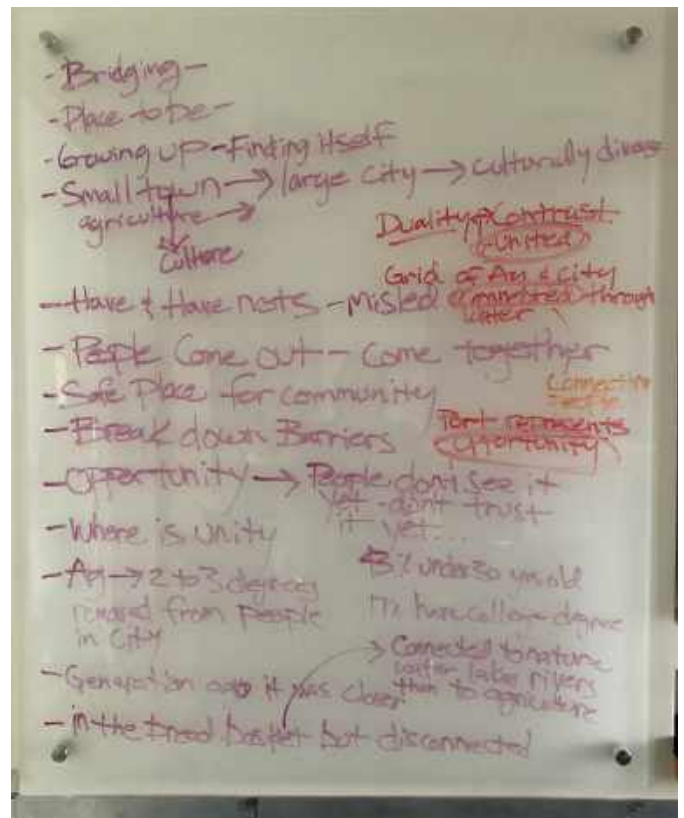 - Bridging -
- Place to be -
- Growing up - Finding itself
- Small town → large city → culturally diverse
agriculture →
culture
Duality + Contrast
- United
Grid of Ag & City
- Have & Have nots - Misled
through
water
- People Come out - Come together
- Safe Place for community
Connection
- Break down Barriers
Port represents
opportunity
- Opportunity → People don't see it
yet - don't trust
it yet...
- Where is unity
- Ag → 2 to 3 degrees
removed from people
in city
% under 30 yrs old
have college degree
→ Connected to nature
water lakes rivers
than to agriculture
- Generation ago it was closer
- in the bread basket but disconnected